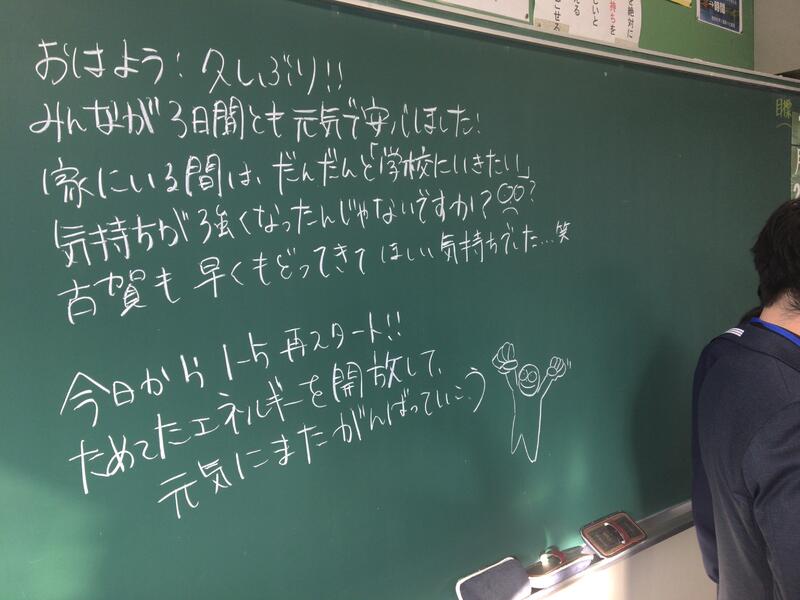 おはよう! 久しぶり!!
みんなが3日間とも元気で安心しました!
家にいる間は、だんだんと「学校にいきたい」
気持ちが強くなったんじゃないですか?
古賀も早くもどってきてほしい気持ちでした…笑
今日から1-5再スタート!!
ためてたエネルギーを開放して、
元気にまたがんばっていこう
目標